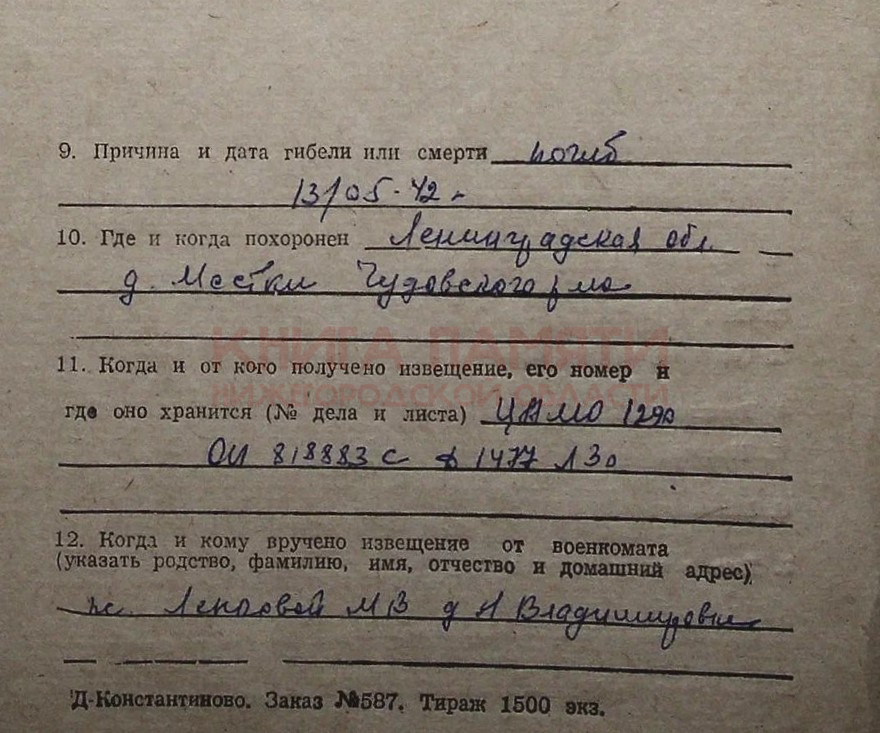 9. Причина и дата гибели или смерти погиб
13/05-42 г
10. Где и когда похоронен Ленинградская обл.
д. Мостки Чудовского р-на
КНИГА ПАМЯТИ
11. Когда и от кого получено извещение, его номер и
НИЖЕГОРОДСКОЙ ОБЛАСТИ
где оно хранится (№ дела и листа) ЦАМО
ОП 818883 с д 1477 л 30
12. Когда и кому вручено извещение от военкомата
(указать родство, фамилию, имя, отчество и домашний адрес)
ж. МВ д Н Владимировка
Д-Константиново. Заказ №587. Тираж 1500 экз.